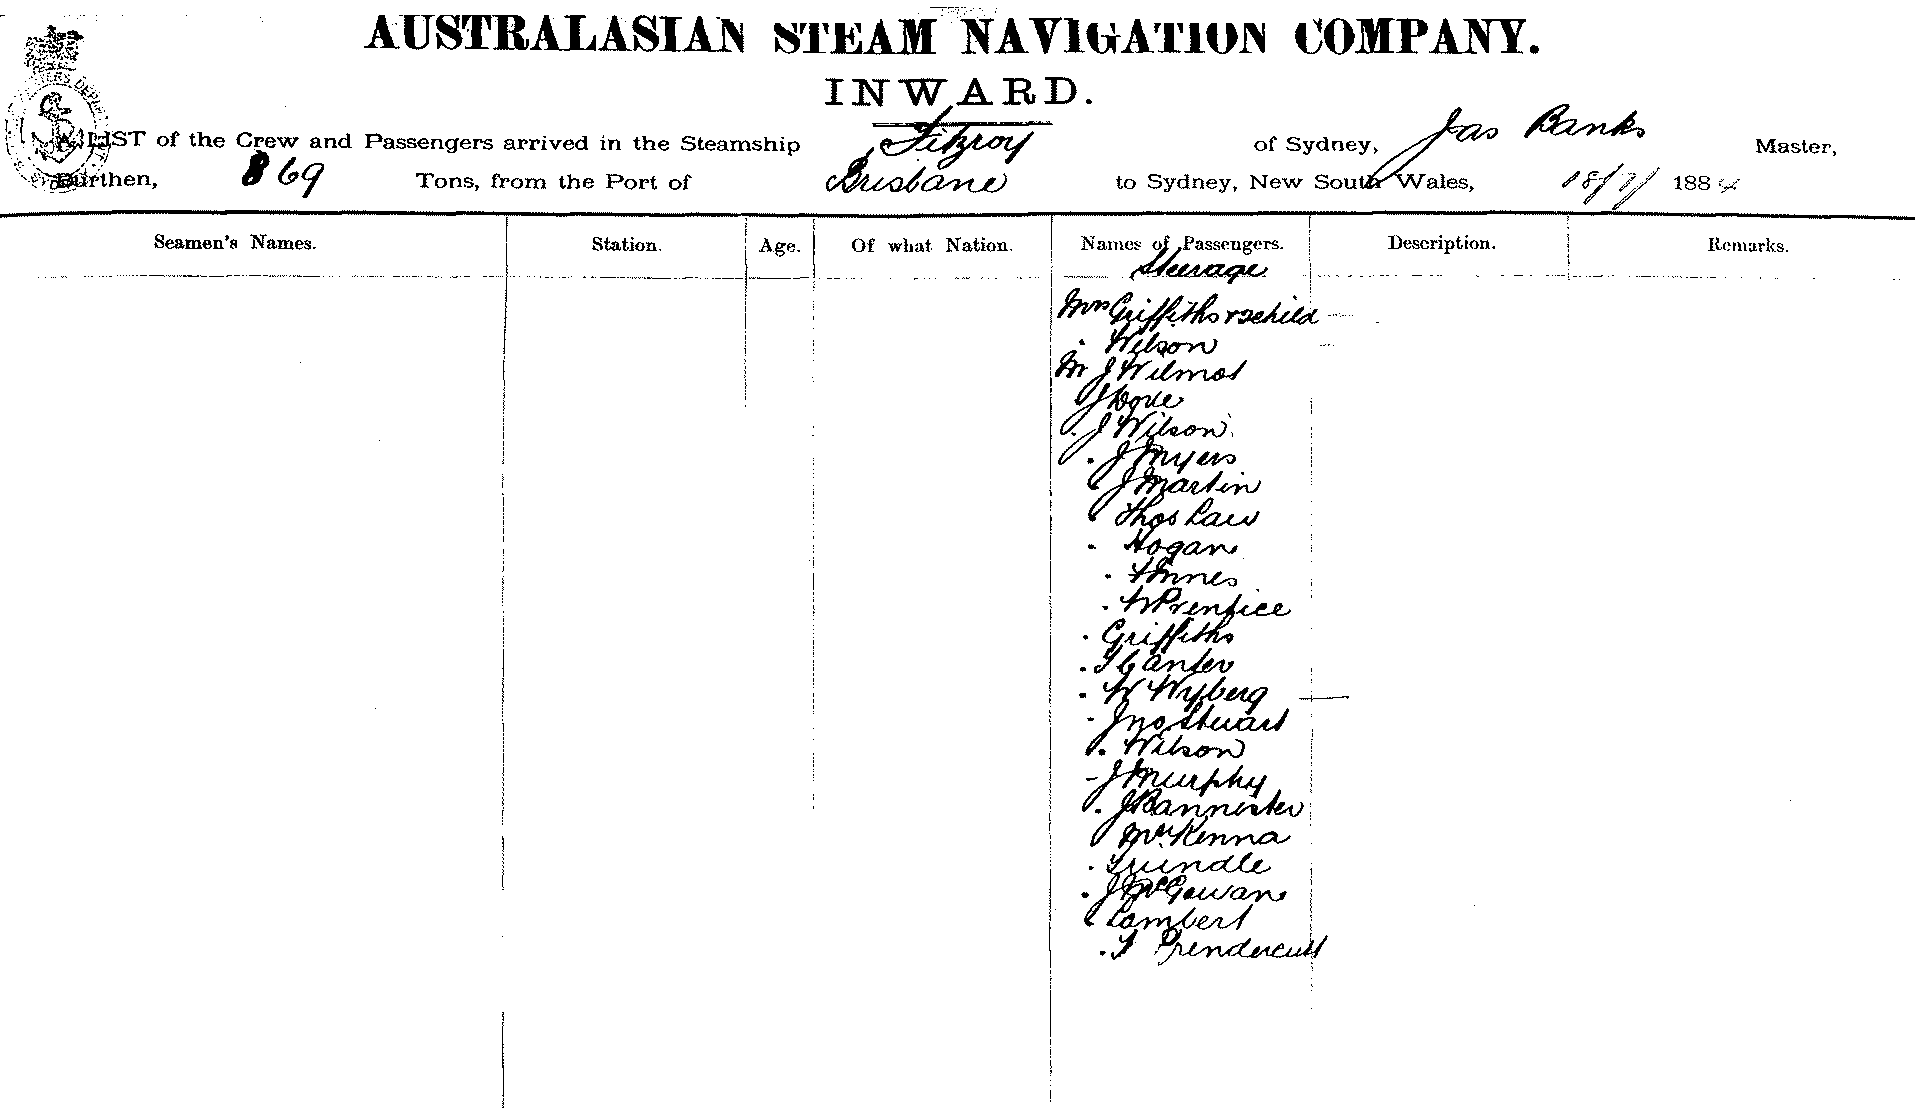 AUSTRALASIAN STEAM NAVIGATION COMPANY.
INWARD.
A LIST of the Crew and Passengers arrived in the Steamship Fitzroy of Sydney, Jas Banks Master,
Burthen, 869 Tons, from the Port of Brisbane to Sydney, New South Wales, 18/7/ 1884
Seamen's Names. Station. Age. Of what Nation. Names of Passengers. Description. Remarks.
Steerage
Mrs Griffiths & child
Wilson
Mr J Wilmot
J Dove
J Wilson
J Myers
J Martin
Thos Law
Hogan
Innes
W Prentice
Griffiths
Canter
W Wyberg
Jno Stewart
Wilson
J Murphy
J Bannister
McKenna
Trundle
J McGowan
Lambert